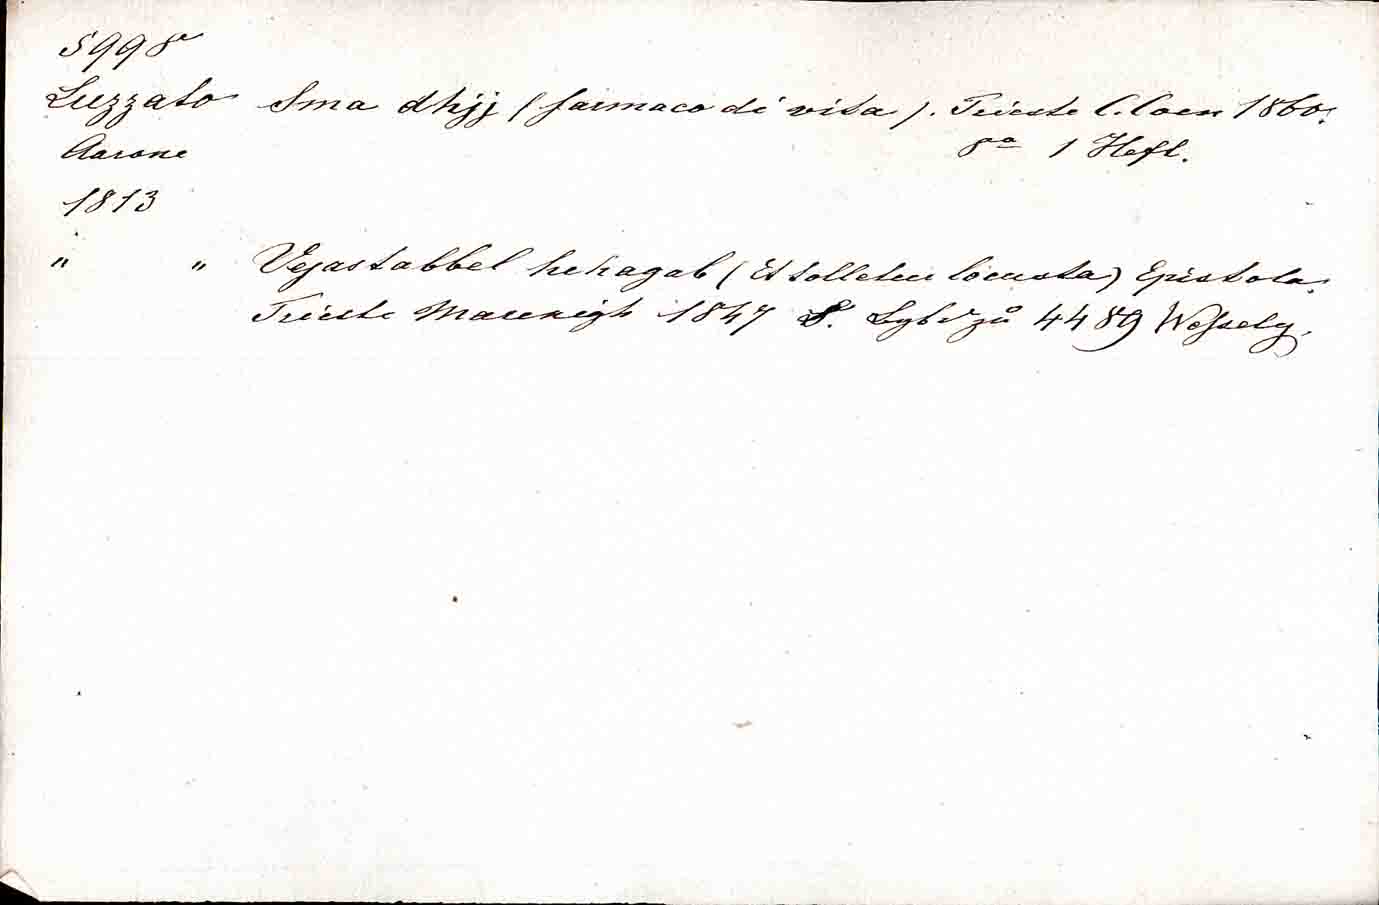 5998
Luzzato Sma dhjj (farmaco di vita). Trieste C. Coen 1860.
Aarone 8º 1 Heft.
1813
" " Vejastabbel hehagab (Et tolletur locusta) Epistola.
Trieste Marenigh 1847 S. zu 4489 Wessely.